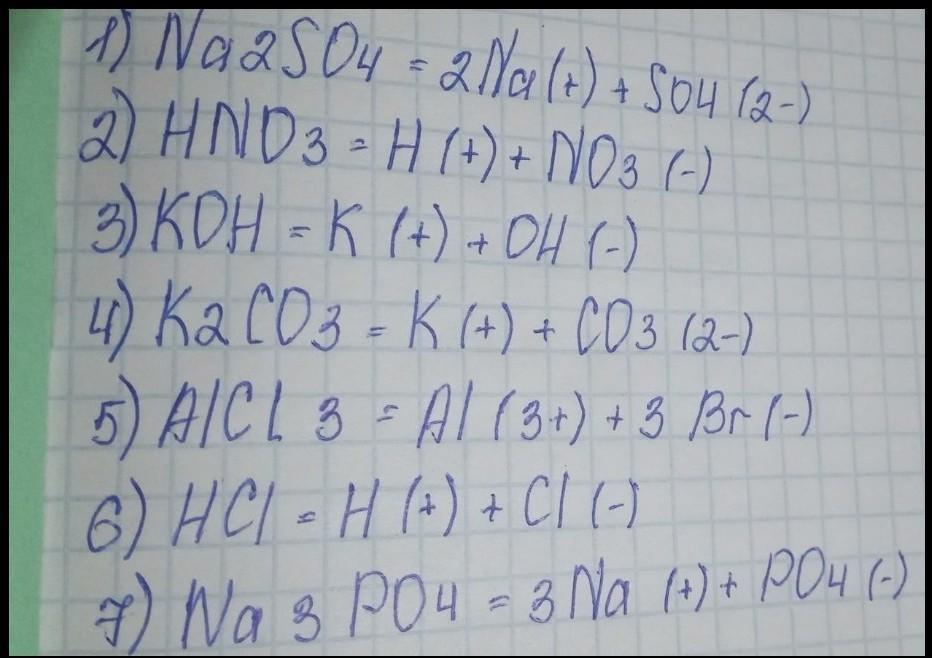 1) Na2SO4 = 2Na(+) + SO4 (2-)
2) HNO3 = H (+) + NO3 (-)
3) KOH = K (+) + OH (-)
4) K2CO3 = K (+) + CO3 (2-)
5) AlCl 3 = Al (3+) + 3 Br (-)
6) HCl = H (+) + Cl (-)
7) Na 3 PO4 = 3Na (+) + PO4 (-)